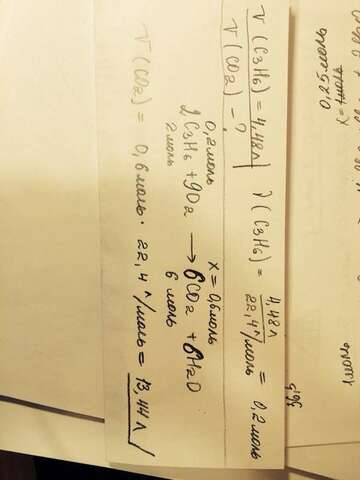 V(C3H6)=4,48л
V(CO2) - ?
ν(C3H6) = 4,48л / 22,4 л/моль = 0,2 моль
0,2 моль x = 0,6 моль
2C3H6 + 9O2 → 6CO2 + 6H2O
2 моль 6 моль
V(CO2) = 0,6 моль · 22,4 л/моль = 13,44 л
0,25 моль